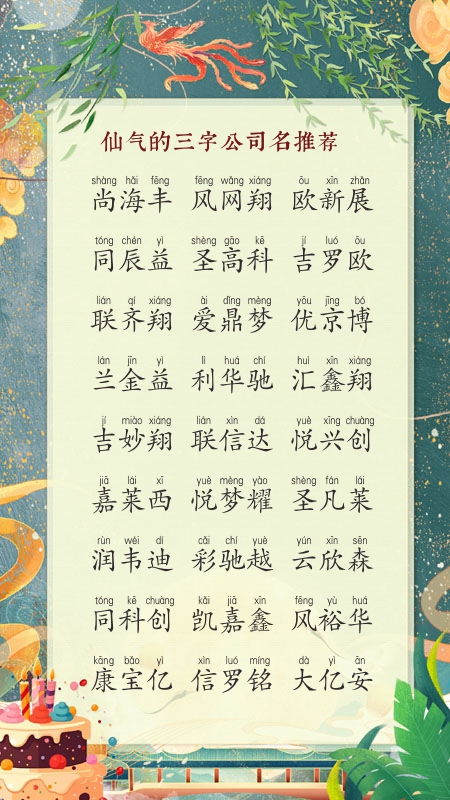 仙气的三字公司名推荐
shàng hǎi fēng fēng wǎng xiáng ōu xīn zhǎn
尚海丰 风网翔 欧新展
tóng chén yì shèng gāo kē jí luó ōu
同辰益 圣高科 吉罗欧
lián qí xiáng ài dǐng mèng yōu jīng bó
联齐翔 爱鼎梦 优京博
lán jīn yì lì huá chí huì xīn xiáng
兰金益 利华驰 汇鑫翔
jí miào xiáng lián xìn dá yuè xīng chuàng
吉妙翔 联信达 悦兴创
jiā lái xī yuè mèng yào shèng fán lái
嘉莱西 悦梦耀 圣凡莱
rùn wéi dí cǎi chí yuè yún xīn sēn
润韦迪 彩驰越 云欣森
tóng kē chuàng kǎi jiā xīn fēng yù huá
同科创 凯嘉鑫 风裕华
kāng bǎo yì xìn luó míng dà yì ān
康宝亿 信罗铭 大亿安